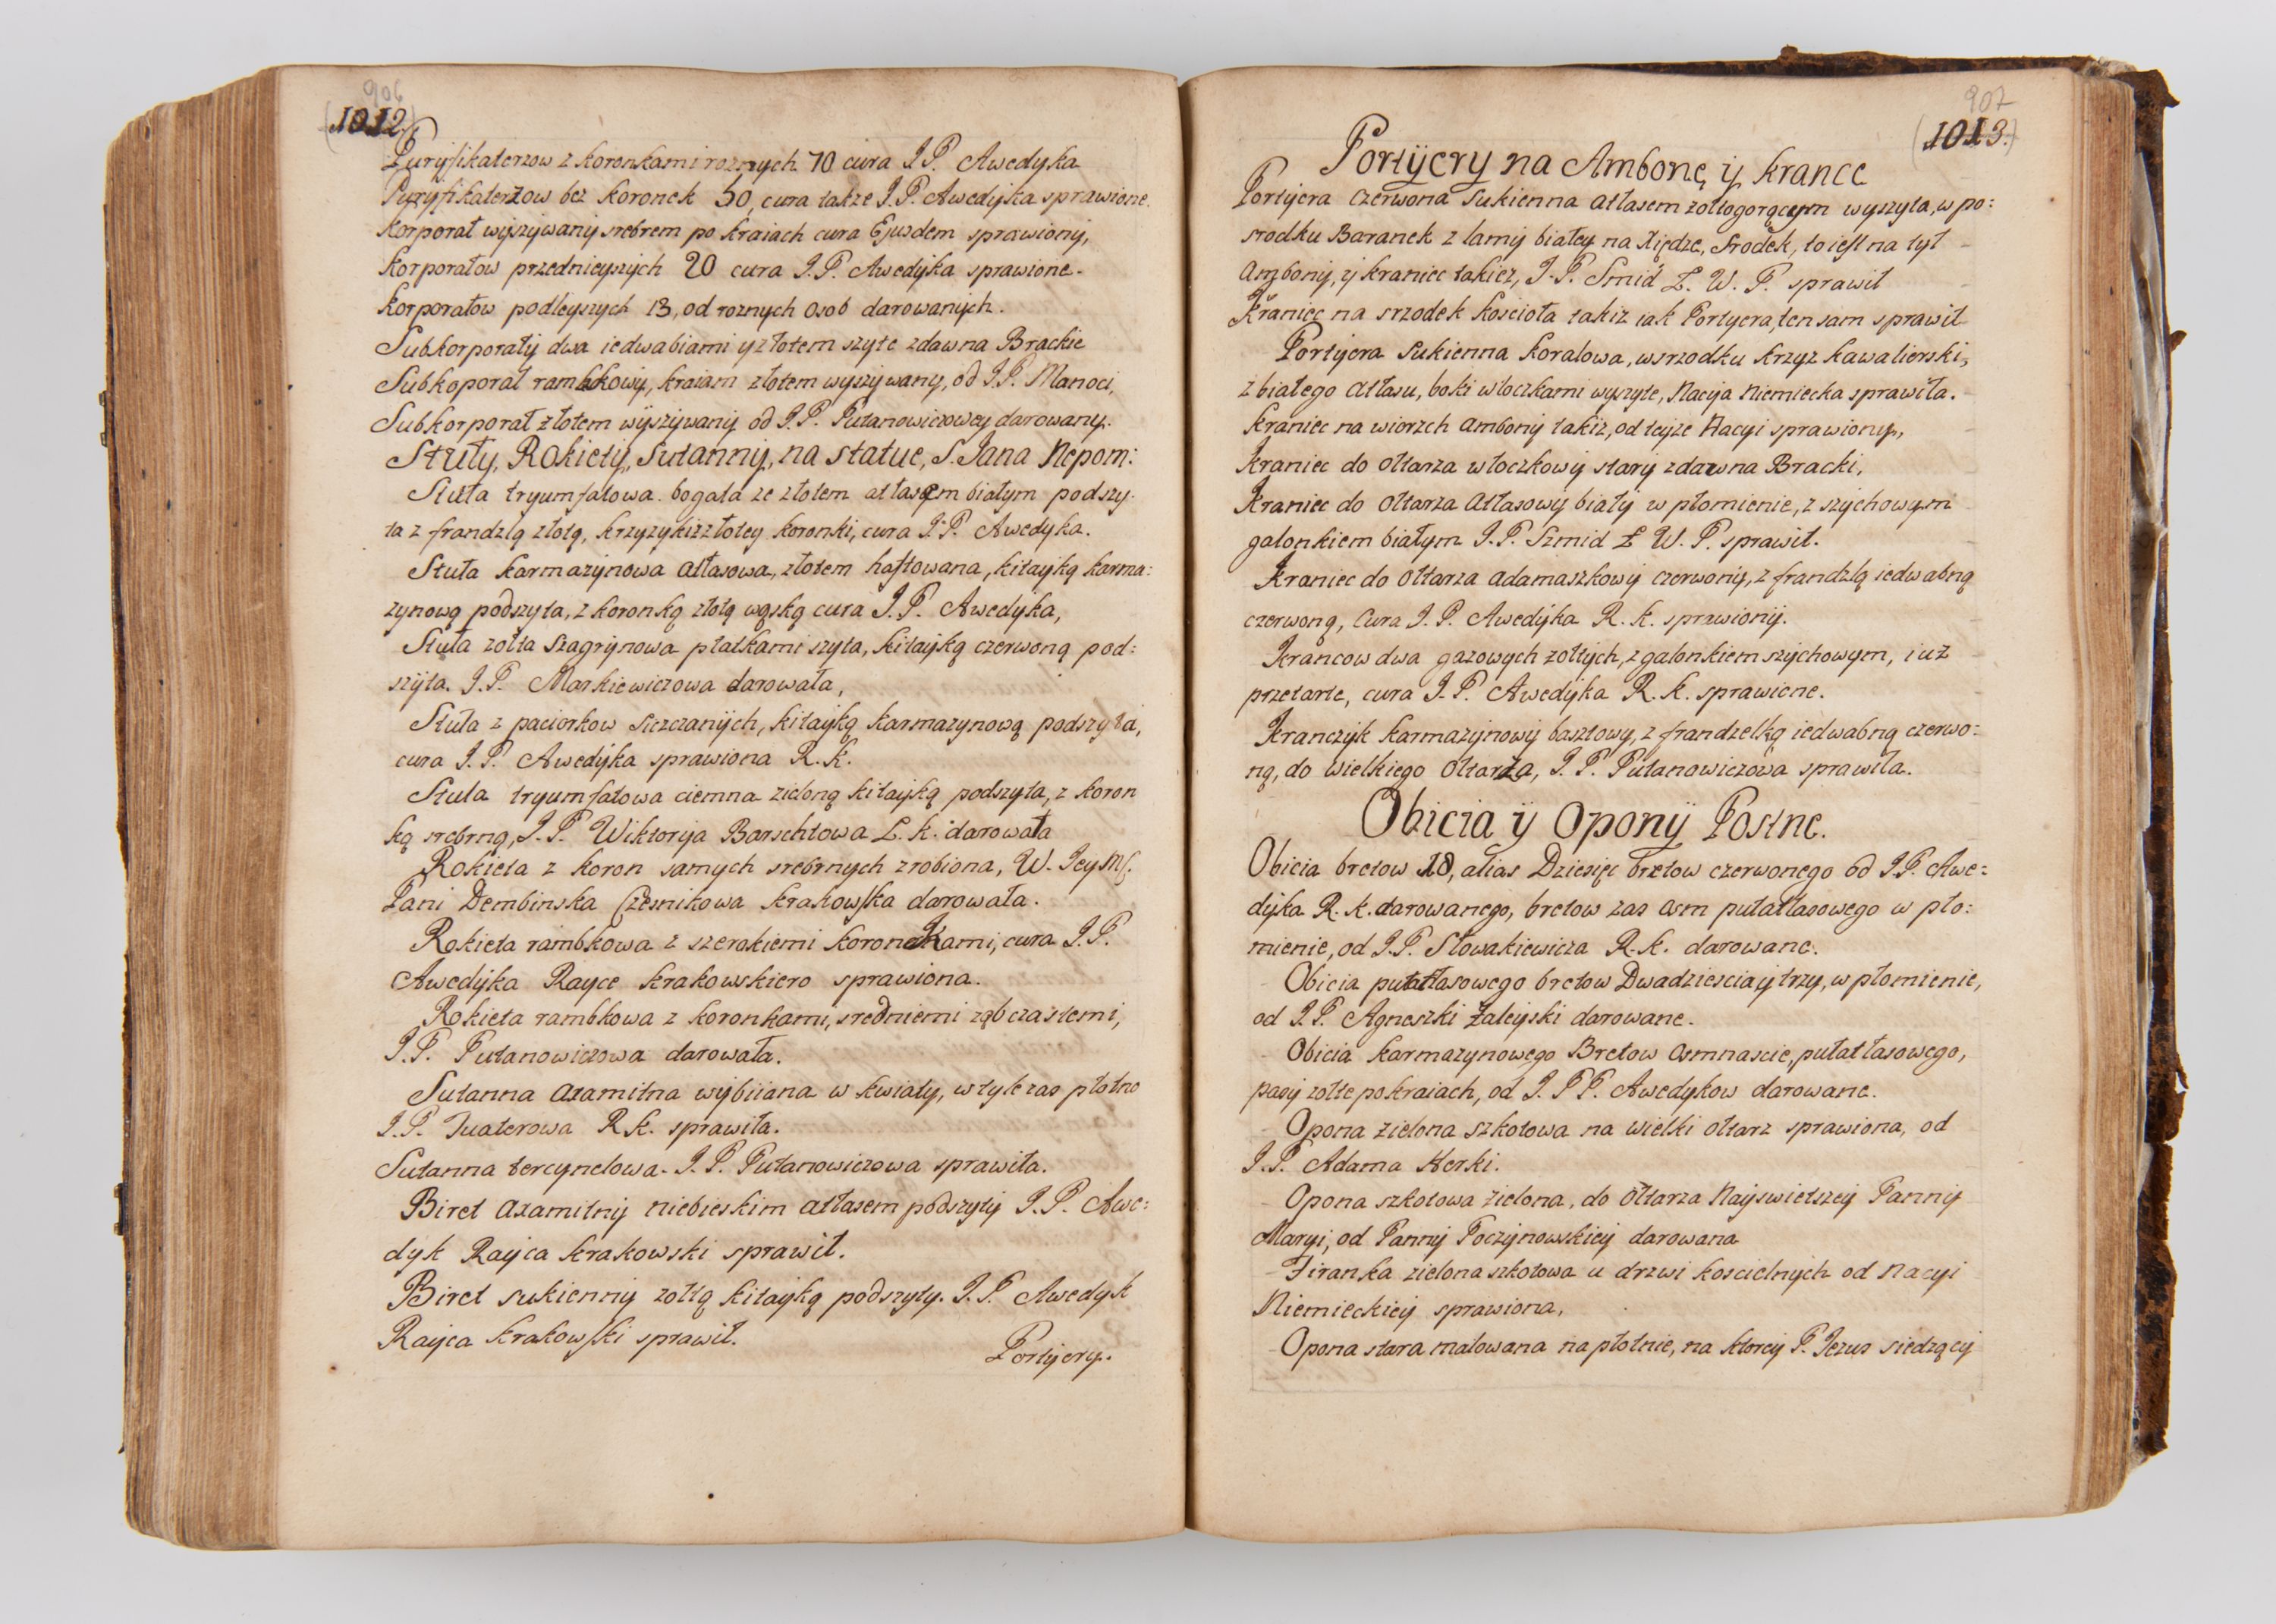 906
(1012.)
Puryfikaterzow z koronkami roznych 70 cura J.P. Awedyka
Puryfikaterzow bez koronek 50, cura także J.P. Awedyka sprawione.
Korporał wyszywany srebrem po kraiach cura Ejusdem sprawiony,
Korporałow przednieyszych 20 cura J.P. Awedyka sprawione.
Korporałow podleyszych 13, od roznych osob darowanych.
Subkorporały dwa iedwabiami y złotem szyte zdawna Brackie
Subkoporał rambkowy, kraiam złotem wyszywany, od J.P. Manoci,
Subkorporał złotem wyszywany od J.P. Putanowiczowey darowany.
Stuły, Rokiety, Sutanny, na statue, S. Jana Nepom:
Stuła tryumfatowa bogata ze złotem atłasem białym podszy-
ta z frandzlą złotą, krzyzyki z złotey koronki, cura J.P. Awedyka.
Stuła karmazynowa atłasowa, złotem haftowana, kitayką karma:
zynową podszyta, z koronką złotą wąską cura J.P. Awedyka,
Stuła zołta szagrynowa płatkami szyta, kitayką czerwoną pod:
szyta. J.P. Markiewiczowa darowała,
Stuła z paciorkow siczczanych, kitayką karmazynową podszyta,
cura J.P. Awedyka sprawiona R.K.
Stuła tryumfatowa ciemna zieloną kitayką podszyta, z koron
ką srebrną, J.P. Wiktorya Barschtowa Ł.K. darowała
Rokieta z koron samych srebrnych zrobiona, W. Jey Mś.
Pani Dembinska Czesnikowa Krakowska darowała.
Rokieta rambkowa z szerokiemi koronkami, cura J.P.
Awedyka Rayce Krakowskiero sprawiona.
Rokieta rambkowa z koronkami, sredniemi ząbczastemi,
J.P. Putanowiczowa darowała.
Sutanna axamitna wybiiana w kwiaty, w tyle zas płotno
J.P. Tuaterowa R.K. sprawiła.
Sutanna tercynelowa. J.P. Putanowiczowa sprawiła.
Biret axamitny niebieskim atłasem podszyty J.P. Awe:
dyk Rayca Krakowski sprawił.
Biret sukienny zołtą kitayką podszyty. J.P. Awedyk
Rayca Krakowski sprawił.
Portyery.
907
(1013.)
Portyery na Ambonę y Krance
Portyera czerwona sukienna atłasem zołtogorącym wyszyta, w po:
srodku Baranek z lamy białey na Xiędze, srodek, to iest na tył
Ambony, y kraniec takiez, J.P. Smid Ł.W.P. sprawił
Kraniec na srzodek kościoła takiz iak Portyera, ten sam sprawił
Portyera sukienna koralowa, wsrzodku krzyz kawalierski,
z białego atłasu, boki włoczkami wyszyte, Nacya Niemiecka sprawiła.
Kraniec na wiorzch ambony takiz, od teyze Nacyi sprawiony,
Kraniec do ołtarza włoczkowy stary zdawna Bracki,
Kraniec do ołtarza atłasowy biały w płomienie, z szychowym
galonkiem białym J.P. Szmid Ł W.P. sprawił.
Kraniec do ołtarza adamaszkowy czerwony, z frandzlą iedwabną
czerwoną, cura J.P. Awedyka R.K. sprawiony.
Krancow dwa gazowych zołtych, z galonkiem szychowym, iuz
przetarte, cura J.P. Awedyka R.K. sprawione.
Kranczyk karmazynowy basztowy, z frandzelką iedwabną czerwo:
ną, do wielkiego ołtarza, J.P. Putanowiczowa sprawiła.
Obicia y Opony Postne.
Obicia bretow 18, alias Dziesięć bretow czerwonego od J.P. Awe:
dyka R.K. darowanego, bretow zas osm pułatłasowego w pło:
mienie, od J.P. Słowakiewicza R.K. darowane.
Obicia pułatłasowego bretow Dwadziescia y trzy, w płomienie,
od J.P. Agneszki Zaleyski darowane.
Obicia karmazynowego Bretow osmnascie, pułatłasowego,
pasy zołte po kraiach, od J.P.P. Awedykow darowane.
Opona zielona szkotowa na wielki ołtarz sprawiona, od
J.P. Adama Herki.
Opona szkotowa zielona, do ołtarza Nayswietszey Panny
Maryi, od Panny Toczynowskiey darowana
Firanka zielona szkotowa u drzwi koscielnych od Nacyi
Niemieckiey sprawiona,
Opona stara malowana na płotnie, na ktorey P. Jezus siedzący